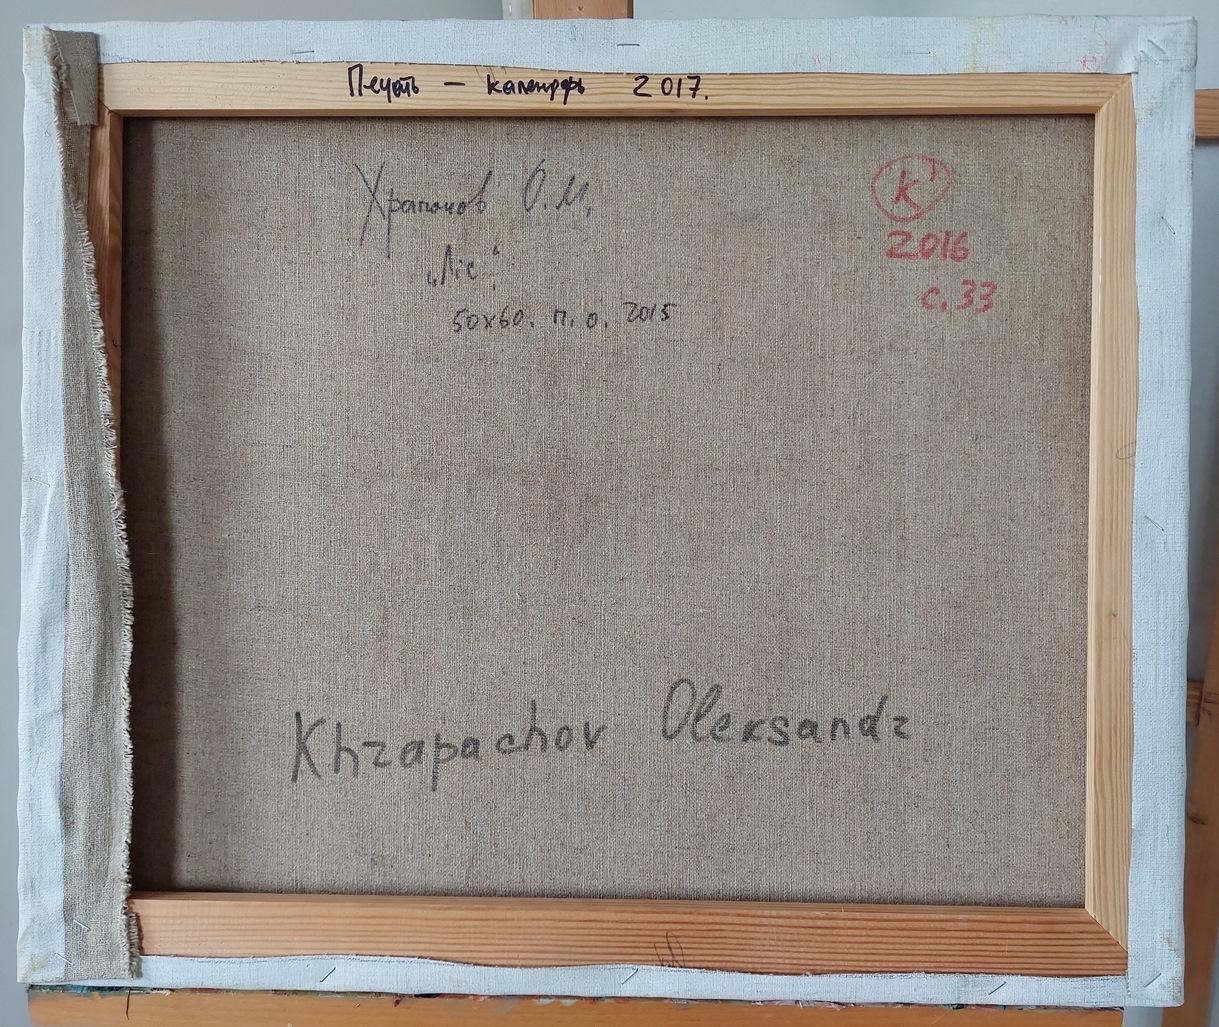 Печать — календарь 2017.
Храпачов О.М.
„Ліс“
50x60. п.о. 2015
К
2016
с. 33
Khrapachov Oleksandr